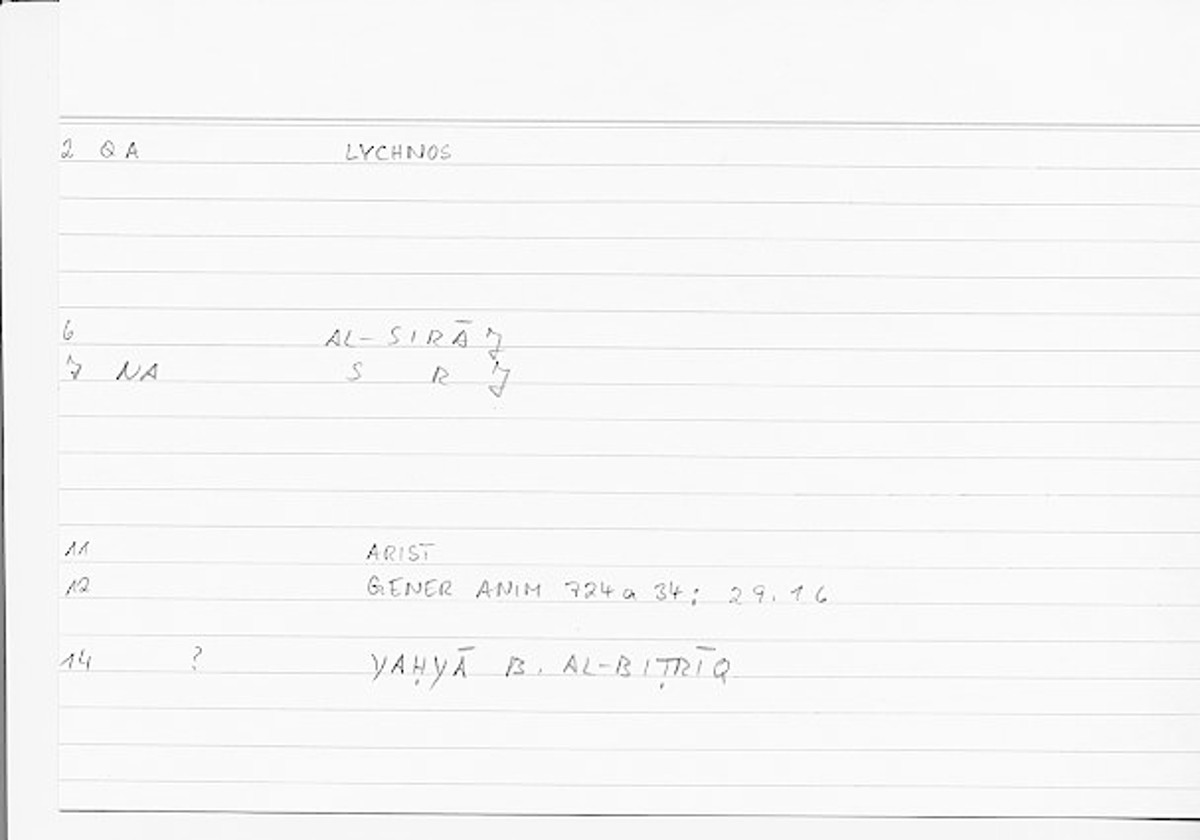 2 QA LYCHNOS
6 AL-SIRĀJ
7 NA S R J
11 ARIST
12 GENER ANIM 724a 34; 29.16
14 ? YAḤYĀ B. AL-BIṬRĪQ